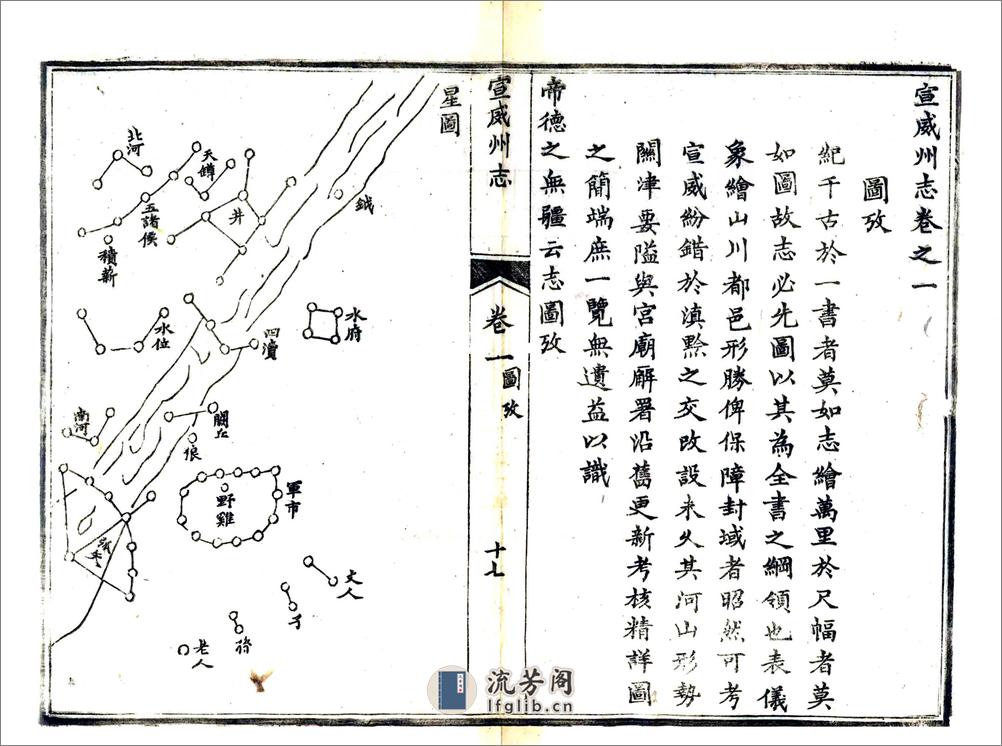 宣威州志卷之一
圖攷
紀千古於一書者莫如志繪萬里於尺幅者莫
如圖故志必先圖以其為全書之綱領也表儀
象繪山川都邑形勝俾保障封域者昭然可考
宣威紛錯於滇黔之交改設未久其河山形勢
關津要隘與宮廟廨署沿舊更新考核精詳圖
之簡端庶一覽無遺益以識
帝德之無疆云志圖攷
宣威州志
卷一
圖攷
十七
星圖
鉞
井
天罇
北河
五諸侯
積薪
水府
四瀆
水位
闕丘
南河
狼
軍市
野雞
弧矢
丈人
子
孫
老人
流芳阁
lfglib.cn